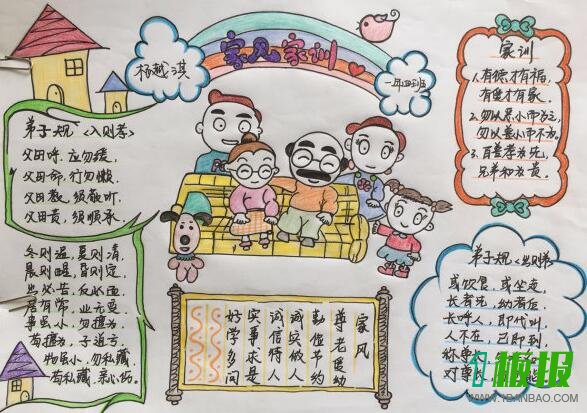 家风家训
杨越淇
一年四班
弟子规《入则孝》
父母呼,应勿缓,
父母命,行勿懒,
父母教,须敬听,
父母责,须顺承。
冬则温,夏则清,
晨则省,昏则定,
出必告,反必面,
居有常,业无变,
事虽小,勿擅为,
苟擅为,子道亏,
物虽小,勿私藏,
苟私藏,亲心伤。
家风
尊老爱幼
勤俭节约
诚实做人
诚信待人
实事求是
好学多问
家训
1.有德才有福,
有俭才有家。
2.勿以恶小而为之,
勿以善小而不为。
3.百善孝为先,
兄弟和为贵。
弟子规《出则弟》
或饮食,或坐走,
长者先,幼者后,
长呼人,即代叫,
人不在,己即到,
称尊长
对尊长
1板报
WWW.1BANBAO.COM